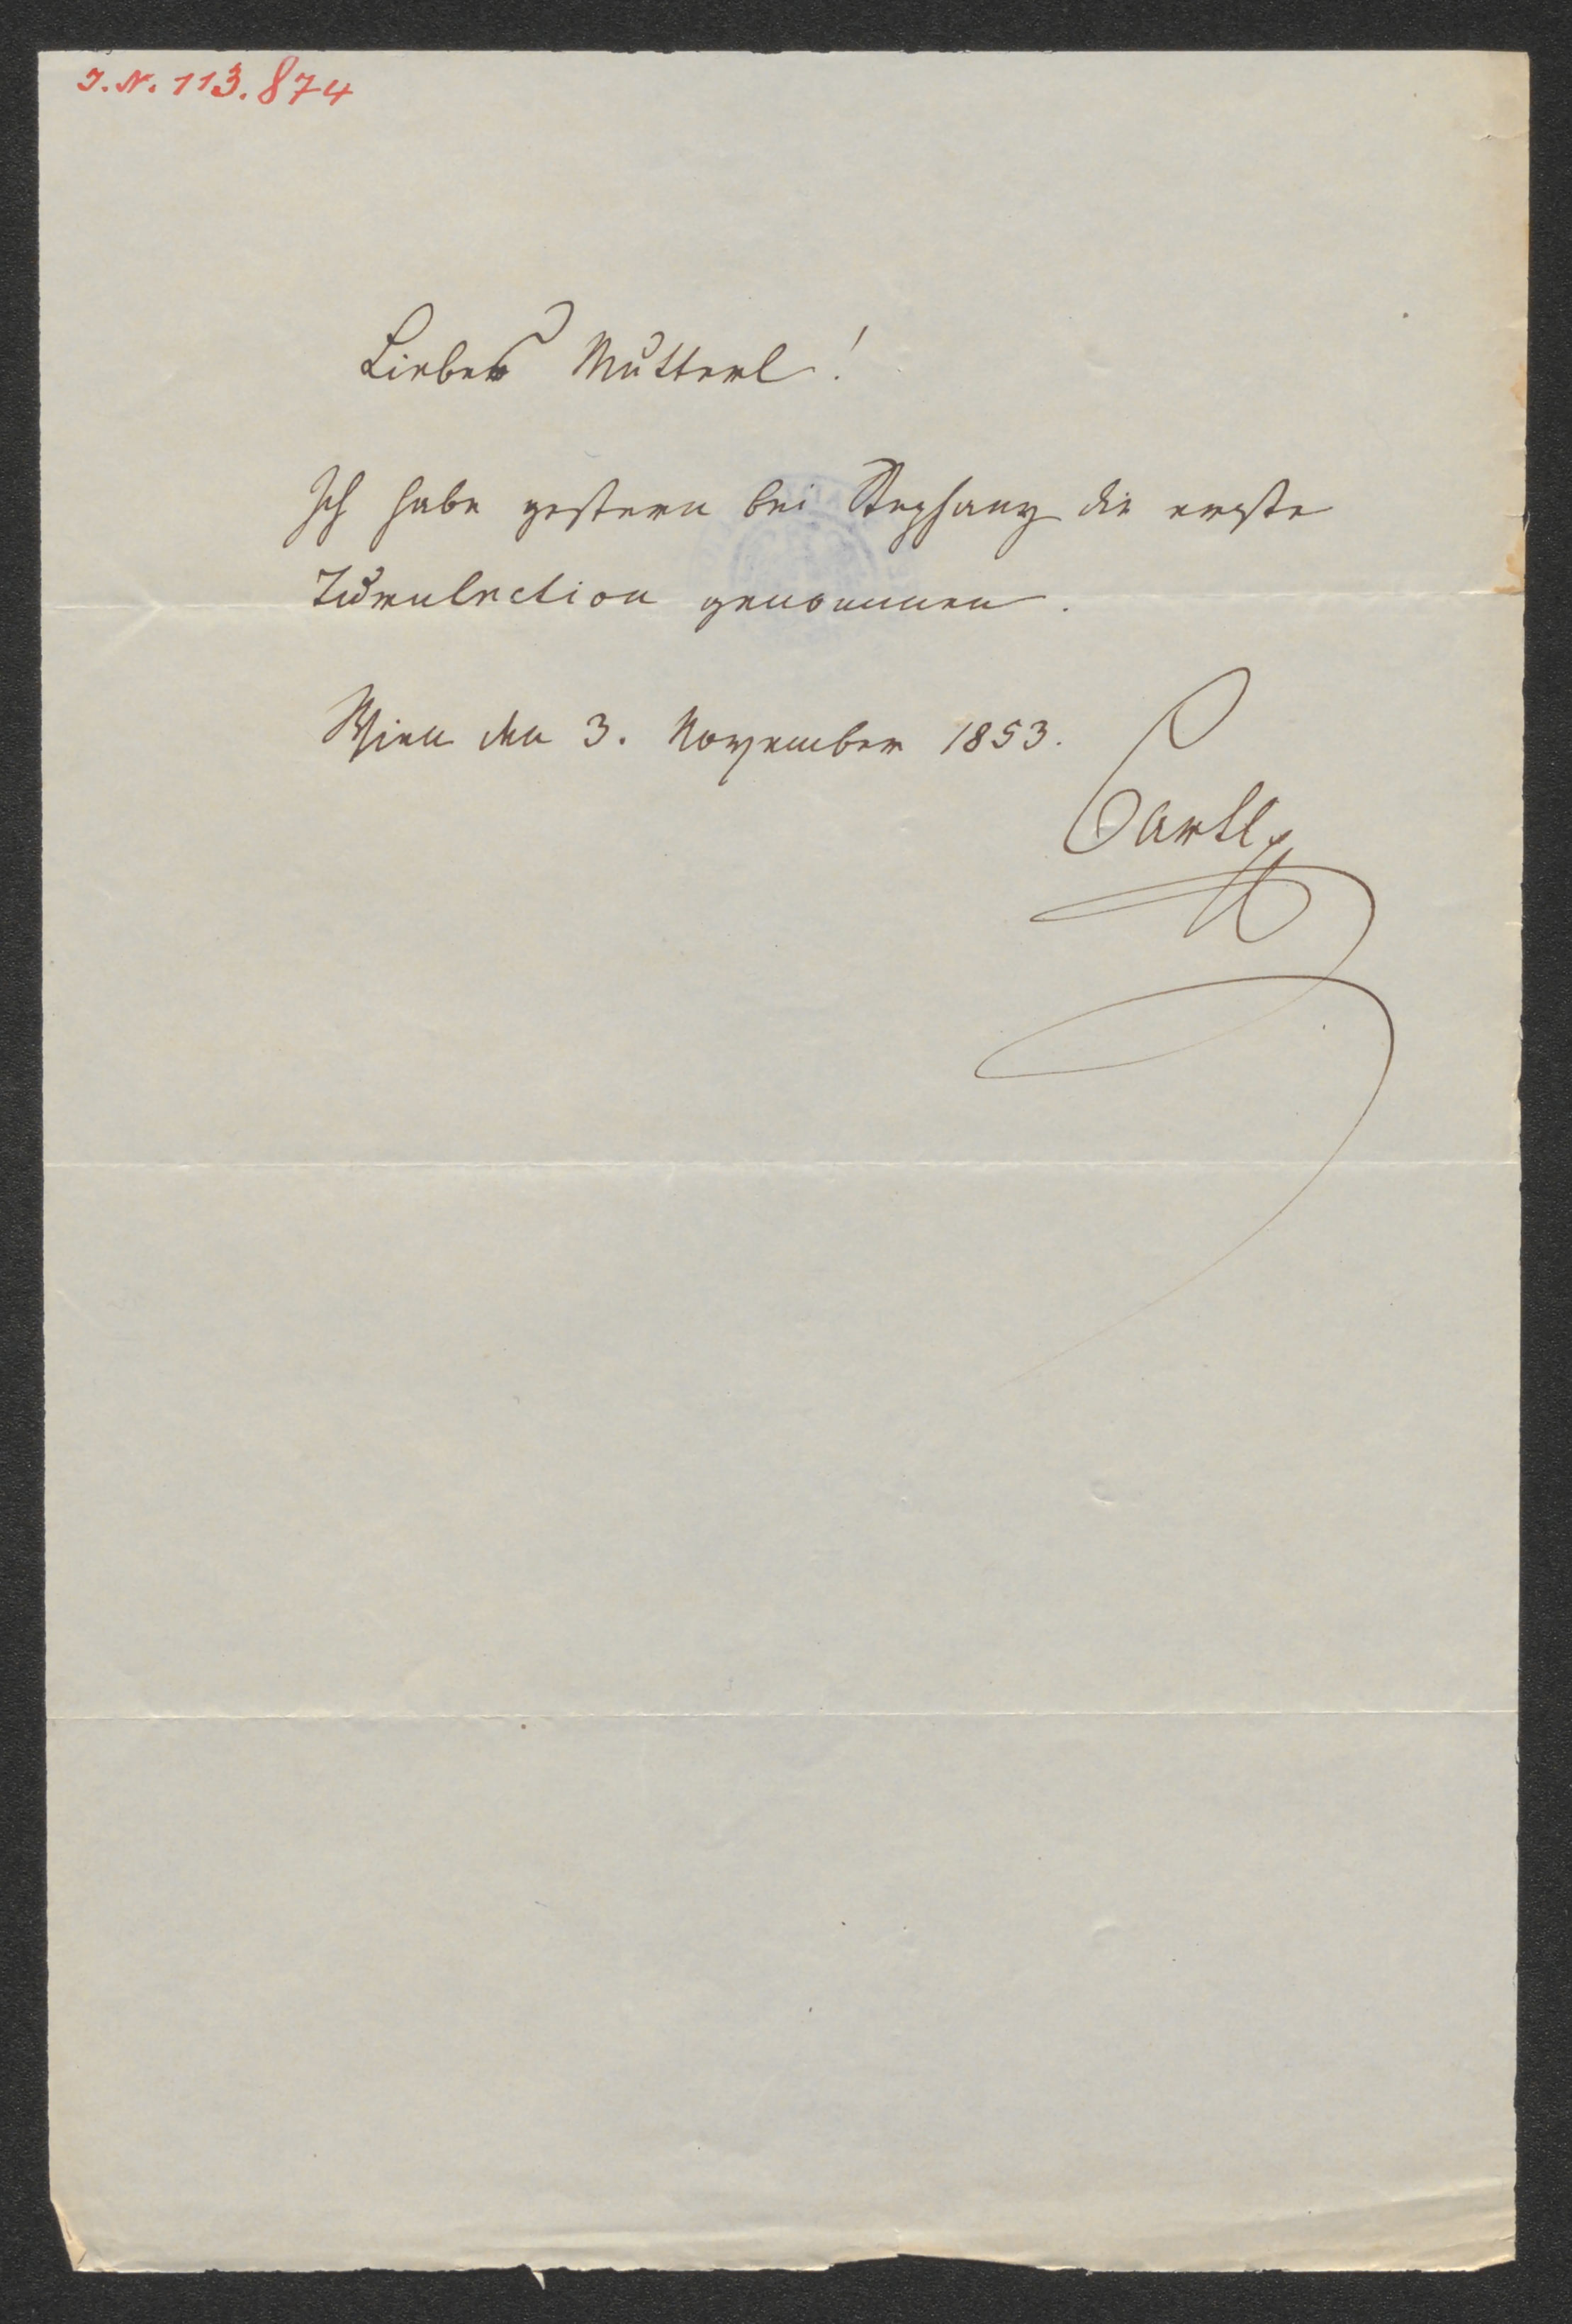 I. N. 113.874
Liebes Mutterl!
Ich habe gestern bei Stephany die erste
Turnlection genommen.
Wien den 3. November 1853.
Carl